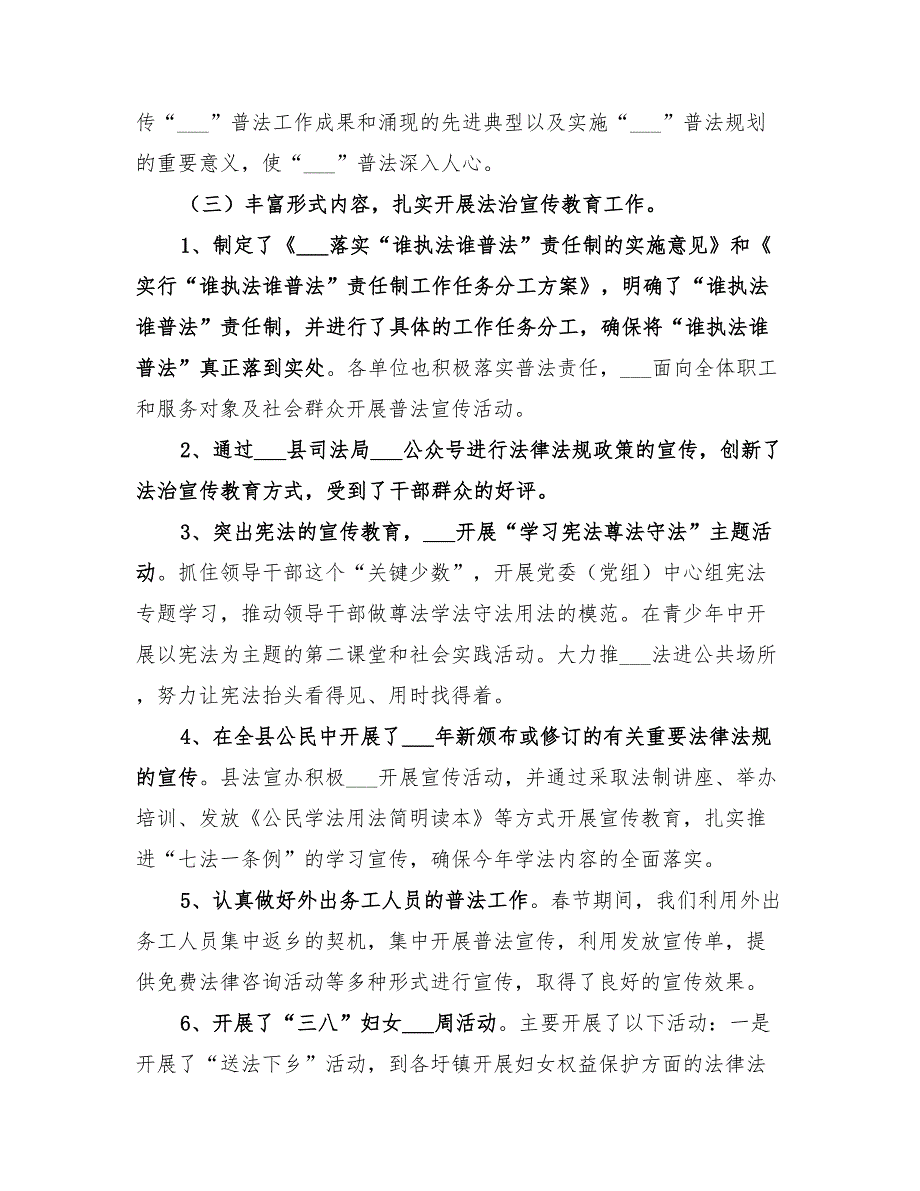 传“___”普法工作成果和涌现的先进典型以及实施“___”普法规划
的重要意义，使“___”普法深入人心。
（三）丰富形式内容，扎实开展法治宣传教育工作。
1、制定了《___落实“谁执法谁普法”责任制的实施意见》和《
实行“谁执法谁普法”责任制工作任务分工方案》，明确了“谁执法
谁普法”责任制，并进行了具体的工作任务分工，确保将“谁执法谁
普法”真正落到实处。各单位也积极落实普法责任，___面向全体职工
和服务对象及社会群众开展普法宣传活动。
2、通过___县司法局___公众号进行法律法规政策的宣传，创新了
法治宣传教育方式，受到了干部群众的好评。
3、突出宪法的宣传教育，___开展“学习宪法尊法守法”主题活
动。抓住领导干部这个“关键少数”，开展党委（党组）中心组宪法
专题学习，推动领导干部做尊法学法守法用法的模范。在青少年中开
展以宪法为主题的第二课堂和社会实践活动。大力推___法进公共场所
，努力让宪法抬头看得见、用时找得着。
4、在全县公民中开展了___年新颁布或修订的有关重要法律法规
的宣传。县法宣办积极___开展宣传活动，并通过采取法制讲座、举办
培训、发放《公民学法用法简明读本》等方式开展宣传教育，扎实推
进“七法一条例”的学习宣传，确保今年学法内容的全面落实。
5、认真做好外出务工人员的普法工作。春节期间，我们利用外出
务工人员集中返乡的契机，集中开展普法宣传，利用发放宣传单，提
供免费法律咨询活动等多种形式进行宣传，取得了良好的宣传效果。
6、开展了“三八”妇女___周活动。主要开展了以下活动：一是
开展了“送法下乡”活动，到各圩镇开展妇女权益保护方面的法律法